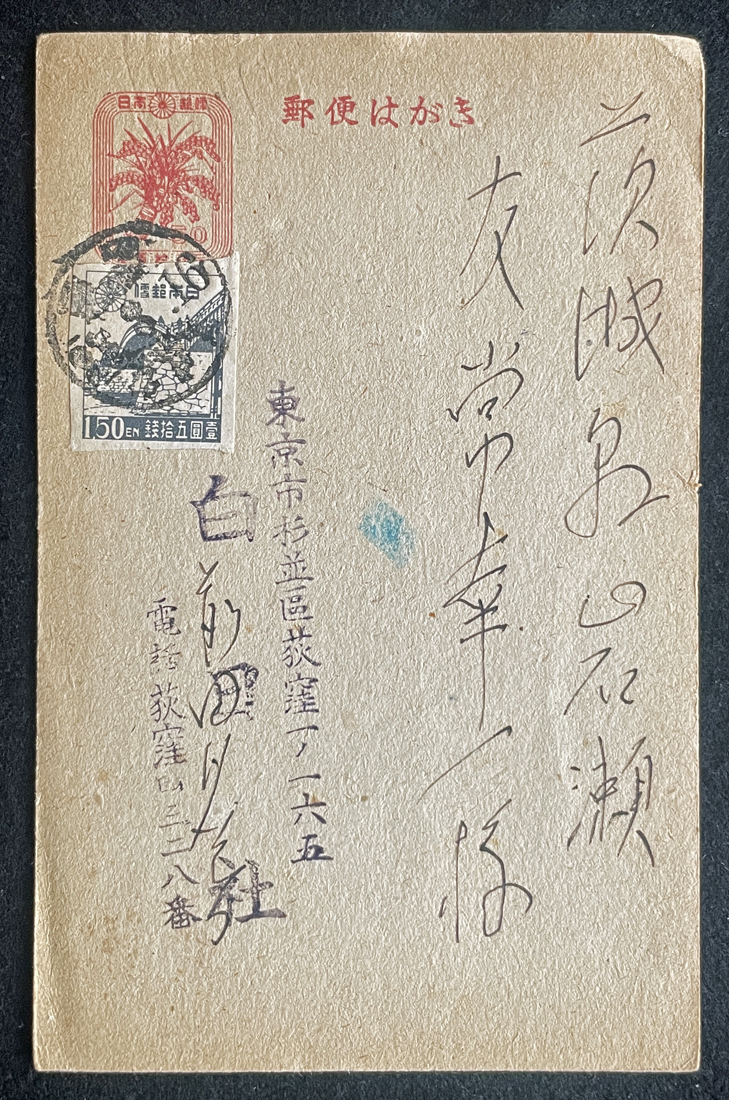 郵便はがき
日本郵便
日本郵便
1.50 EN 壹圓五拾錢
茨城県岩瀬
友常幸一様
東京市杉並區荻窪一ノ一六五
白日社
前田夕暮
電話荻窪四三二八番